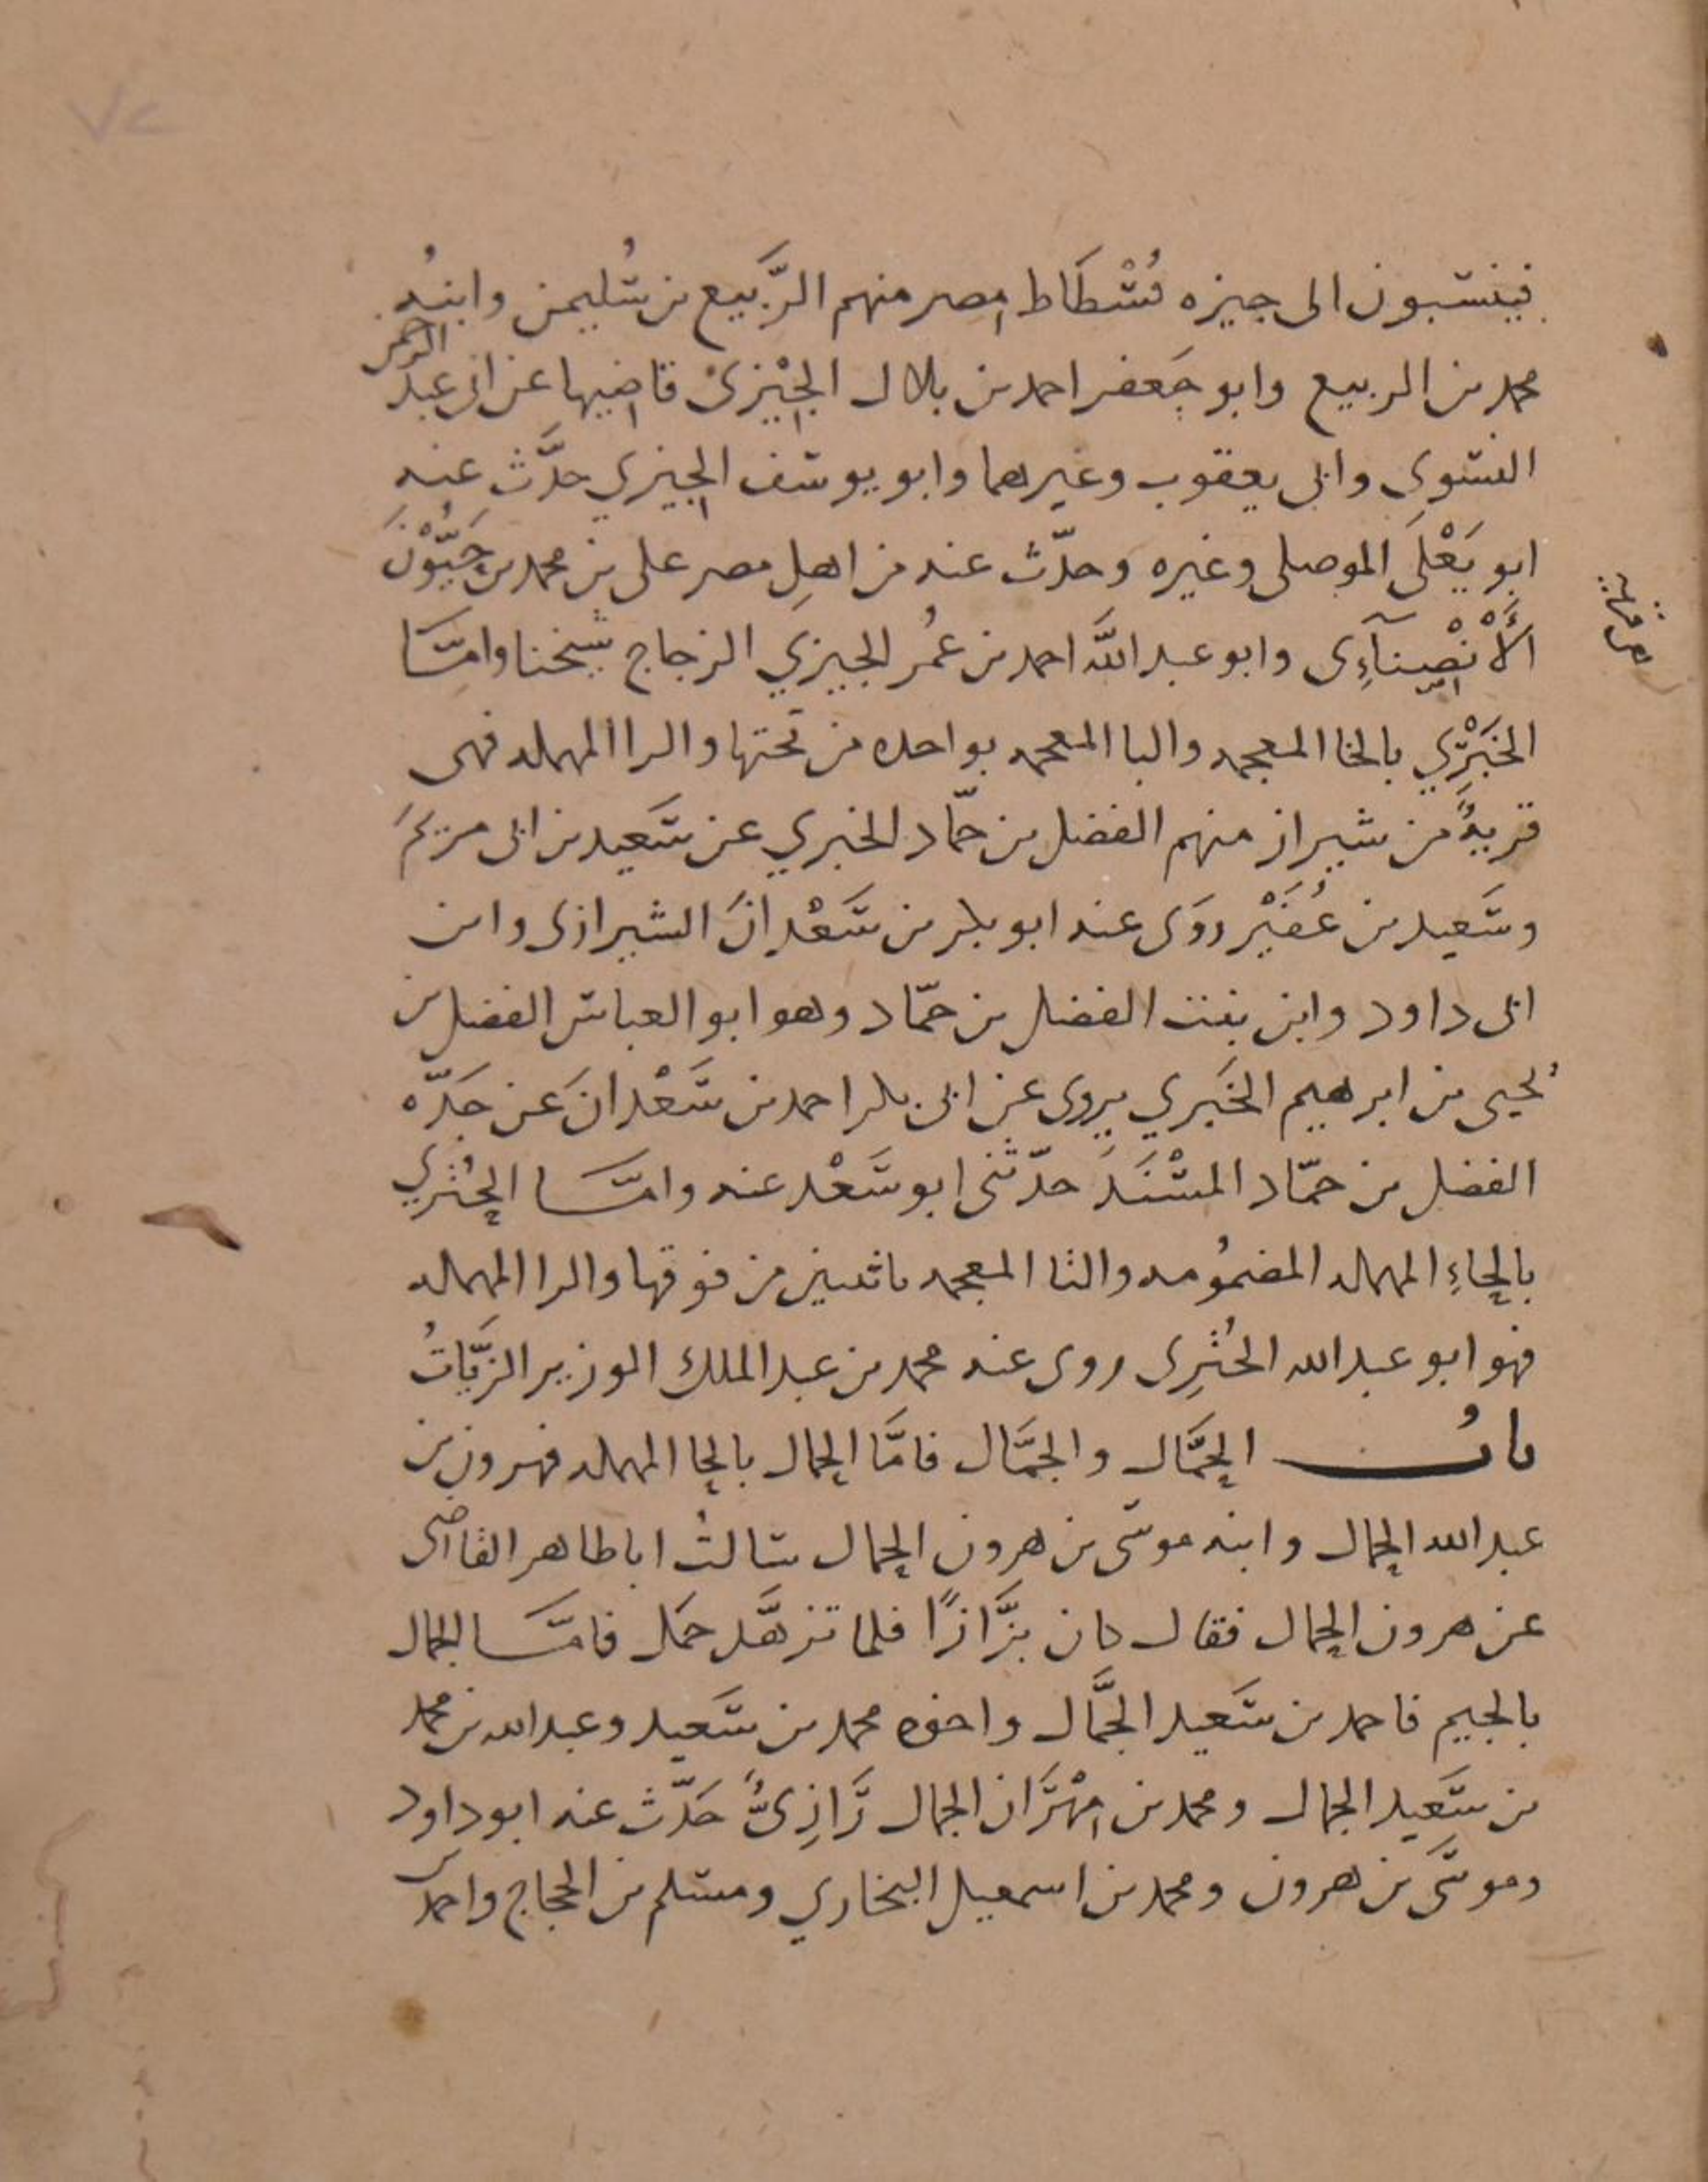 ٧٢
فينسبون الى جيزه فُسْطَاط مصر منهم الرَّبيع بن سُليمن وابنُه
محمد بن الربيع وابو جَعفر احمد بن بلال الجِيْزىّ قاضيها عن ابى عبد الرحمن
النسوى وابى يعقوب وغيرهما وابو يوسف الجيزي حدَّث عنه
ابو يَعْلَى الموصلى وغيره وحدّث عنه من اهلِ مصر على بن محمد بن حَيُّوْنَ
الأَنْصِنآءِى وابو عبد اللَّه احمد بن عمُر الجيزي الزجاج شيخنا وامَّا
الخَبْرِي بالخا المعجمه والبا المعجمه بواحده من تحتها والرا المهمله فهى
قريةٌ من شيراز منهم الفضل بن حمّاد الخبري عن سَعيد بن ابى مريَمَ
وسَعيد بن عُفَيْر روَى عنه ابو بكر بن سَعْدانَ الشيرازى وابن
ابى داود وابن بنت الفضل بن حمّاد وهو ابو العباس الفضل بن
يُحيى بن ابرهيم الخَبري يروى عن ابى بكر احمد بن سَعْدانَ عن جَدّه
الفضل بن حمّاد المسْنَدَ حدّثنى ابو سَعْد عنه وامَّا الحُثري
بالحاءِ المهمله المضمُومه والثا المعجمه باثنين من فوقها والرا المهمله
فهو ابو عبد الله الحُثرِى روى عنه محمد بن عبد الملك الوزير الزيَّاتُ
بابُ الحمَّال والجمَّال فامَّا الحمال بالحا المهمله فهرون بن
عبد الله الحمال وابنه موسَى بن هرون الحمال سالتُ ابا طاهر القاضى
عن هرون الحمال فقال كان بزَّازًا فلما تزهَّد حمَل فامَّا الجمال
بالجيم فاحمد بن سَعيد الجمَّال واخوه محمد بن سَعيد وعبد الله بن محمد
بن سَعيد الجمال ومحمد بن مِهْرَان الجمال رَازِىٌّ حَدّث عنه ابو داود
وموسَى بن هرون ومحمد بن اسمعيل البخاري ومسلم بن الحجاج واحمد بن